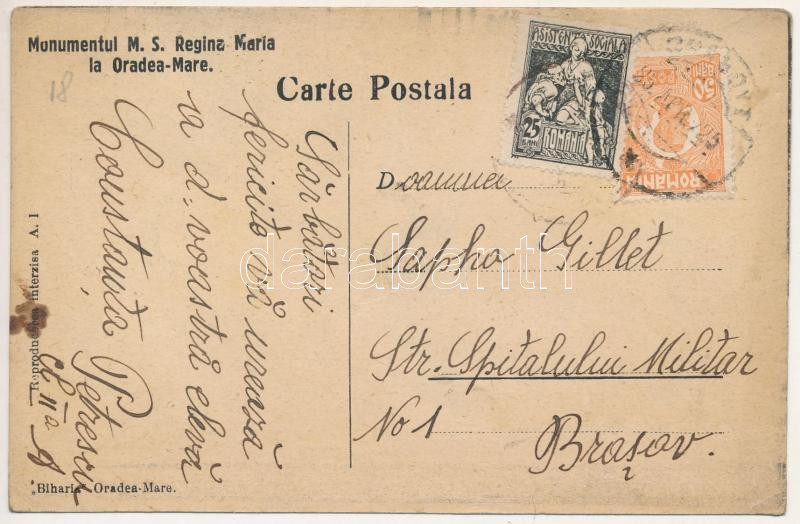 Monumentul M. S. Regina Maria
la Oradea-Mare.
18
Carte Postala
ASISTENTA SOCIALA
25
BANI
ROMANIA
50
BANI
ROMANIA
Doamnei
Sapho Gillet
Str. Spitalului Militar
No 1
Brașov.
Sărbători
fericite vă urează
a d-voastră elevă
Constanța Petrescu
cl IIa A
Reproducerea interzisa A. I
„Biharia" Oradea-Mare.
darabanth